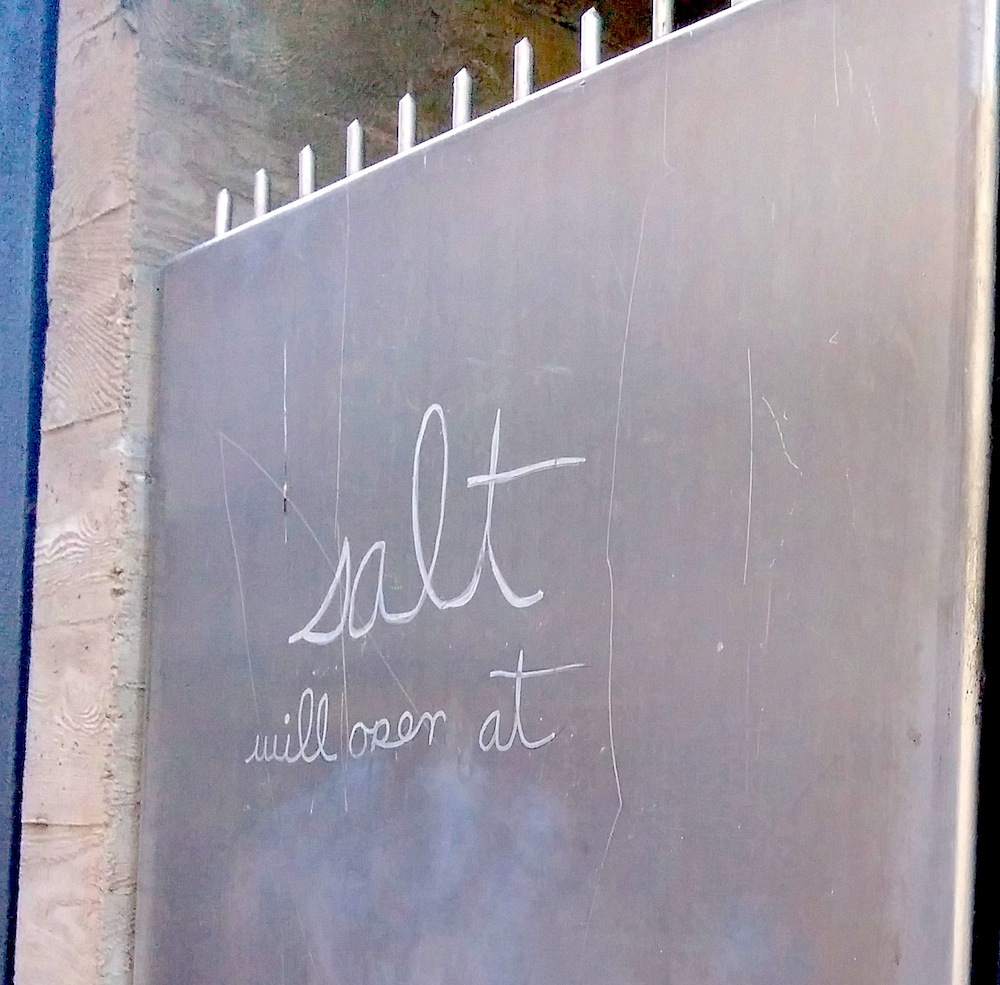 salt
will open at